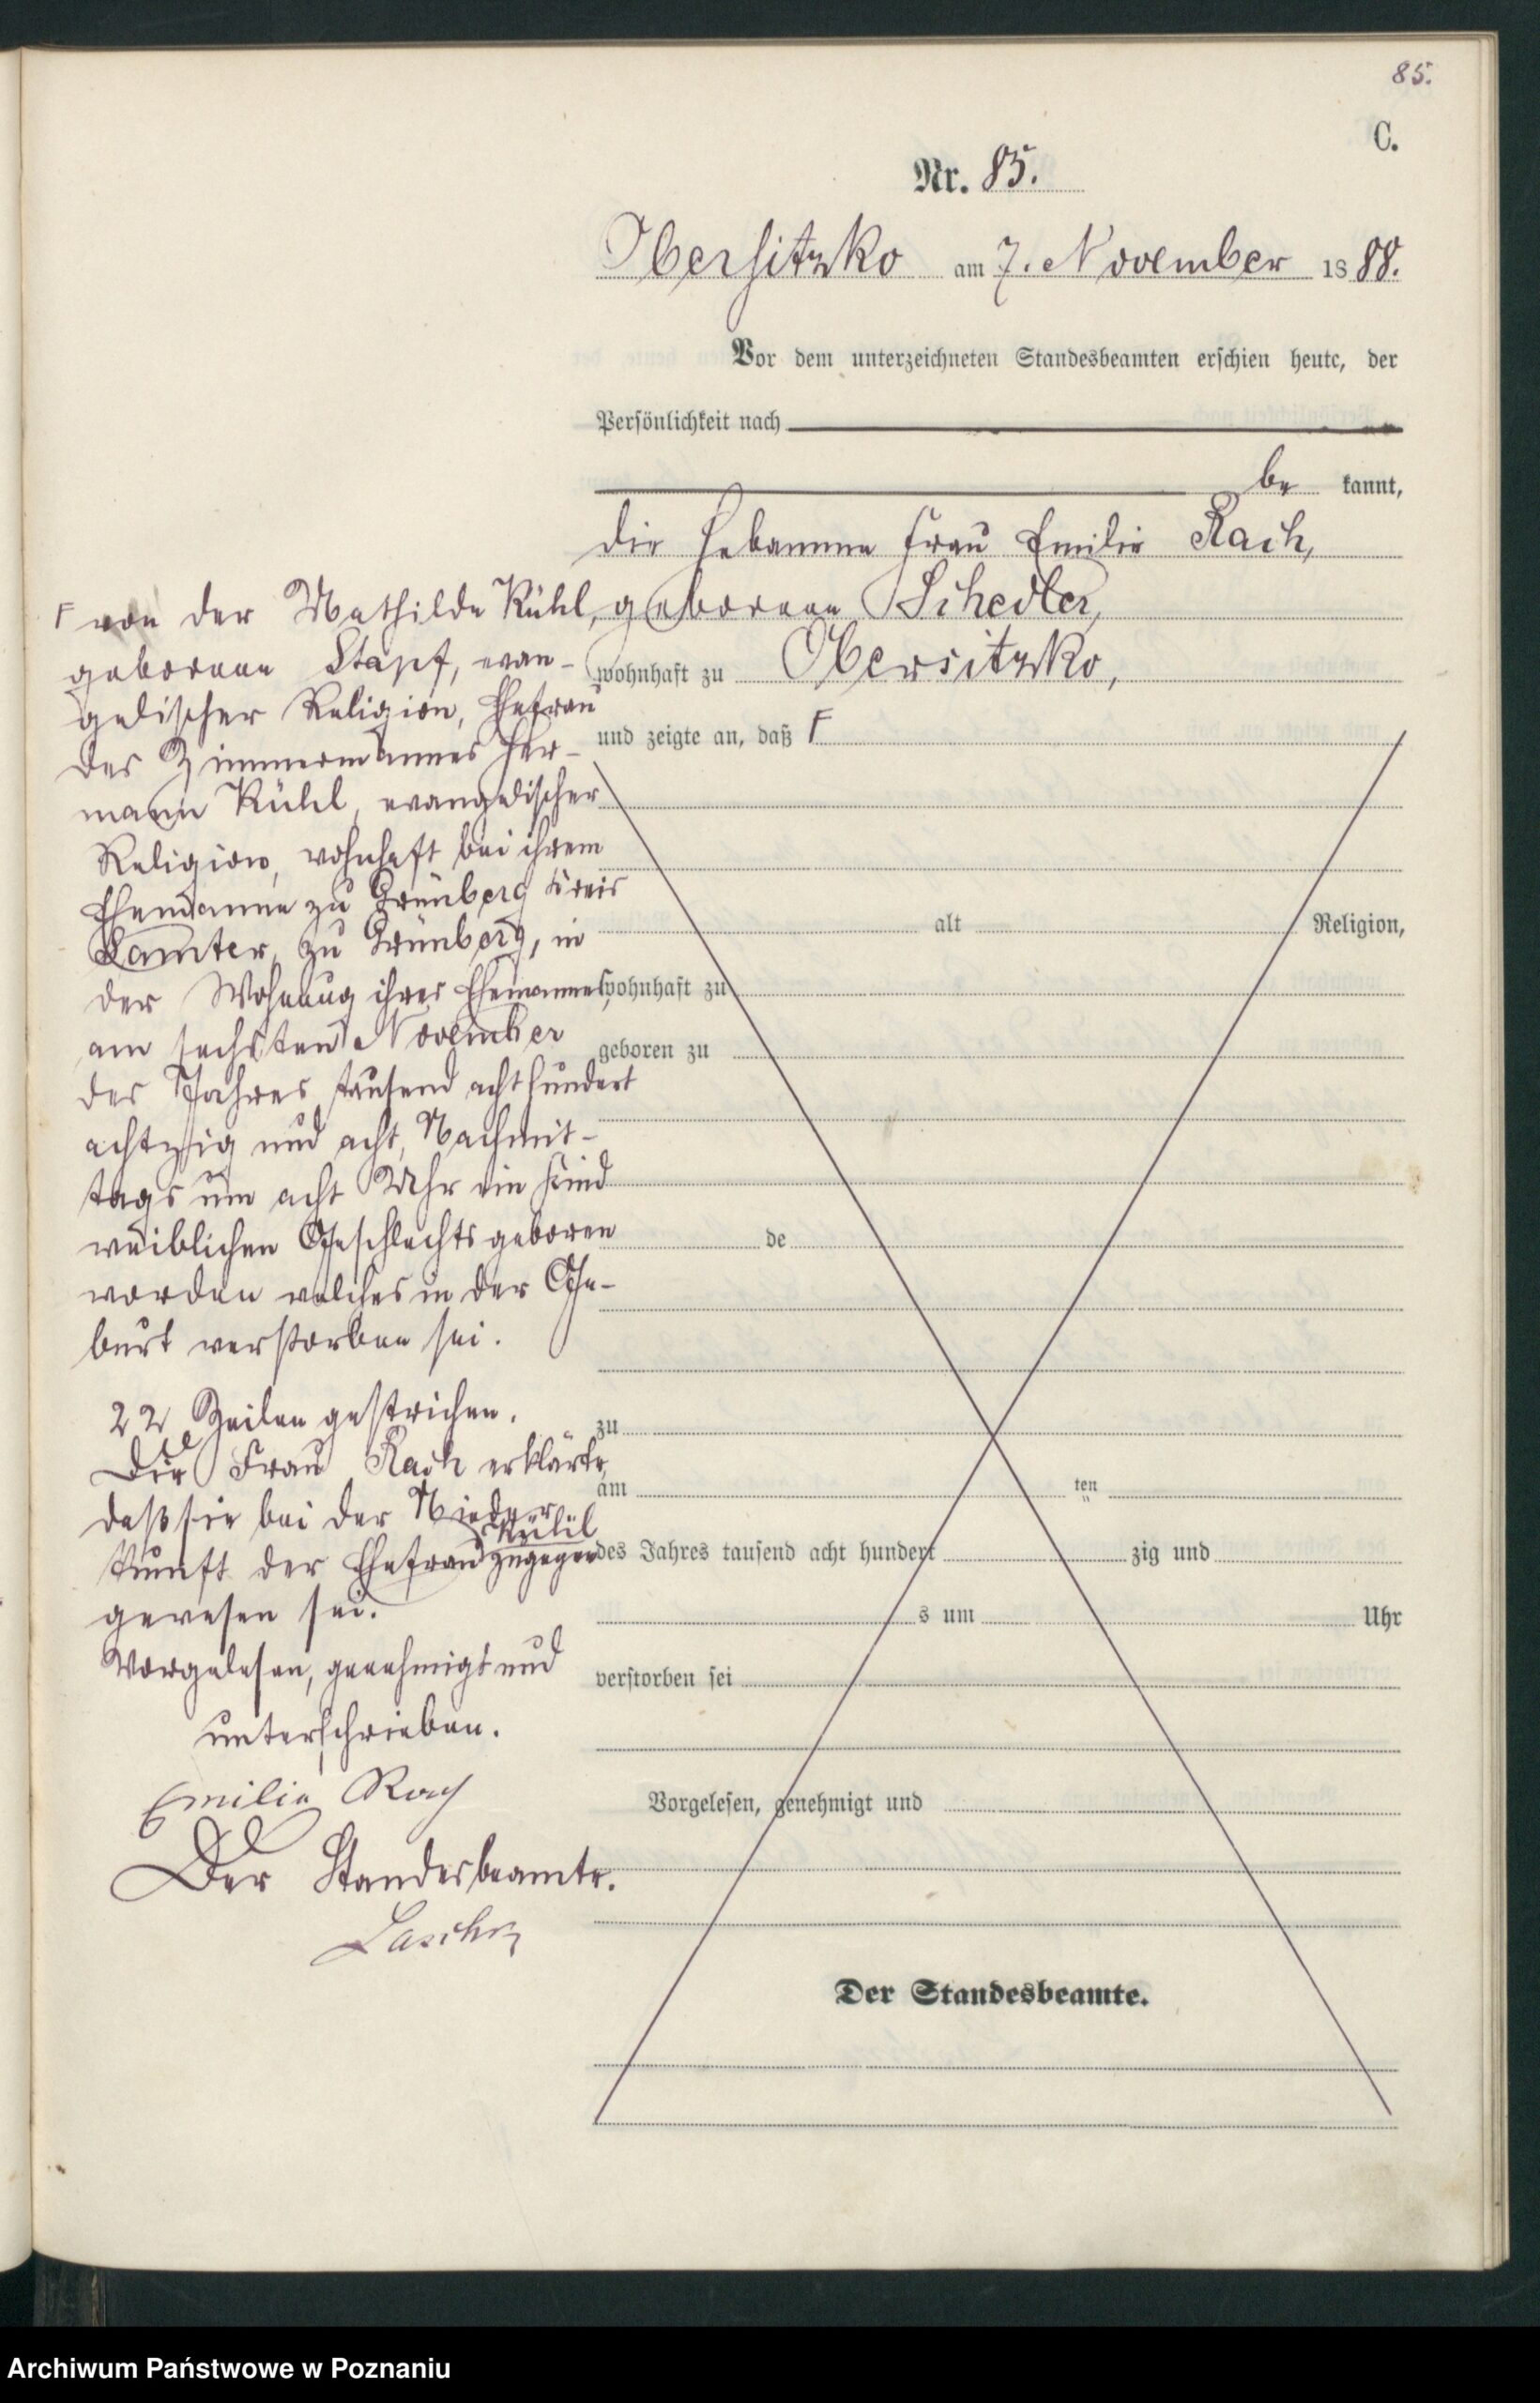 85.
C.
Nr. 85.
Obersitzko am 7. November 1888.
Vor dem unterzeichneten Standesbeamten erschien heute, der
Persönlichkeit nach
be kannt,
die Hebamme Frau Emilie Rach,
geborene Schedler,
wohnhaft zu Obersitzko,
und zeigte an, daß F
F von der Mathilde Kühl,
geborene Stapf, evan-
gelischer Religion, Ehefrau
des Zimmermannes Her-
mann Kühl, evangelischer
Religion, wohnhaft bei ihrem
Ehemanne zu Grünberg Kreis
Samter, zu Grünberg, in
der Wohnung ihres Ehemannes,
am sechsten November
des Jahres tausend acht hundert
achtzig und acht, Nachmit-
tags um acht Uhr ein Kind
weiblichen Geschlechts geboren
worden welches in der Ge-
burt verstorben sei.
22 Zeilen gestrichen.
Die Frau Rach erklärte,
daß sie bei der Nieder-
kunft der Ehefrau Kühl zugegen
gewesen sei.
Vorgelesen, genehmigt und
unterschrieben.
Emilie Rach
Der Standesbeamte.
alt Religion,
wohnhaft zu
geboren zu
de
zu
am ten
des Jahres tausend acht hundert zig und
s um Uhr
verstorben sei
Vorgelesen, genehmigt und
Der Standesbeamte.
Archiwum Państwowe w Poznaniu